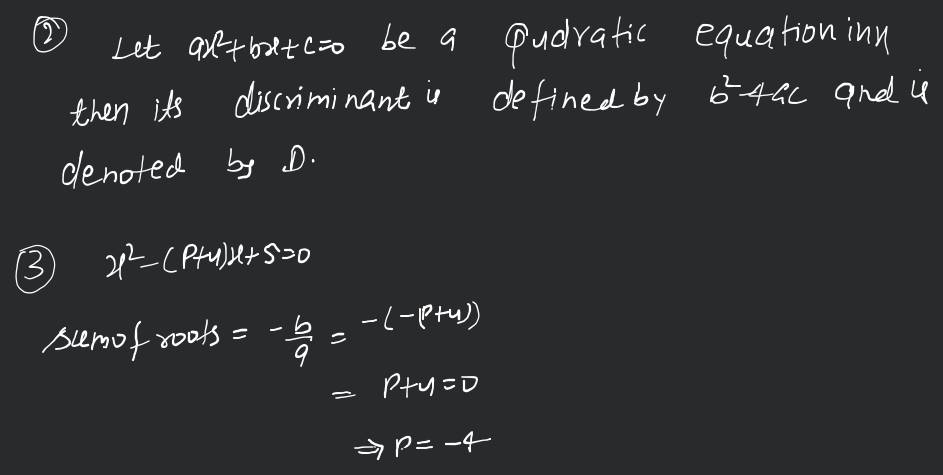 ② Let ax²+bx+c=0 be a quadratic equation in x
then its discriminant is defined by b²-4ac and is
denoted by D.
③ x²-(P+4)x+5=0
sum of roots = -b/a = -(-(P+4))
= P+4=0
⇒ P= -4